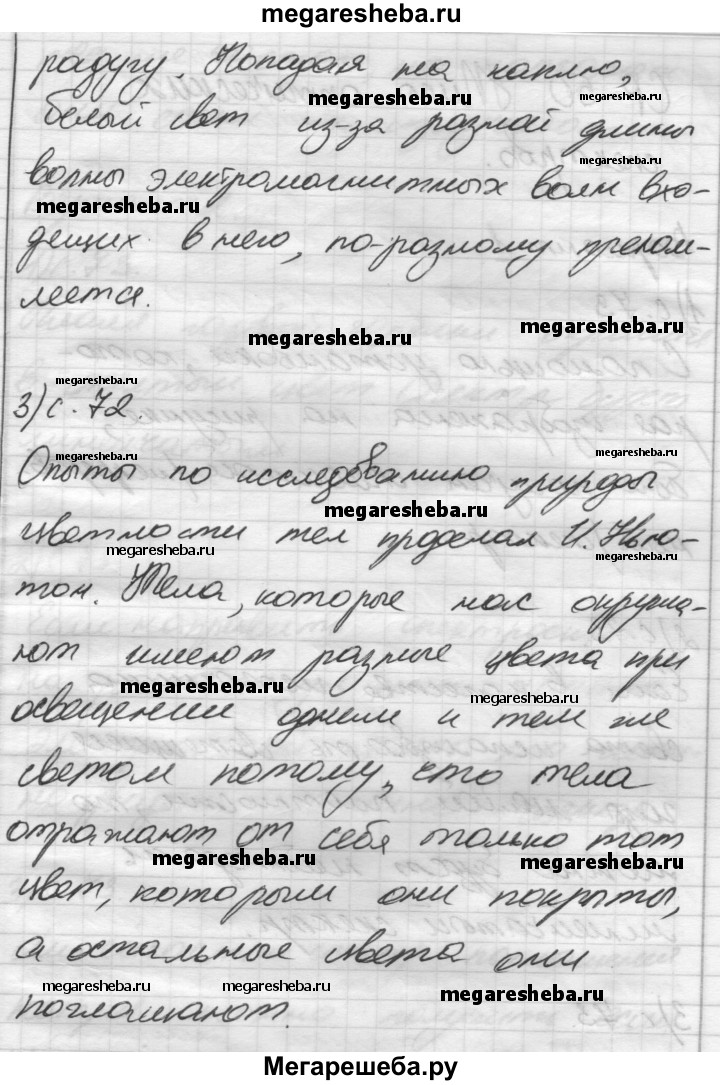 megaresheba.ru
радугу. Попадая на каплю,
megaresheba.ru megaresheba.ru
белый свет из-за разной длины
megaresheba.ru
волны электромагнитных волн вхо-
megaresheba.ru
дещих в него, по-разному прелом-
ляется.
megaresheba.ru megaresheba.ru
megaresheba.ru
3) с. 72.
megaresheba.ru megaresheba.ru
Опыты по исследованию природы
megaresheba.ru
цветности тел проделал И. Нью-
megaresheba.ru megaresheba.ru
тон. Тела, которые нас окружа-
ют имеют разные цвета при
megaresheba.ru megaresheba.ru
освещении одним и тем же
светом потому, что тела
отражают от себя только тот
megaresheba.ru megaresheba.ru
цвет, которым они покрыты,
а остальные цвета они
megaresheba.ru megaresheba.ru megaresheba.ru
поглащают.
Мегарешеба.ру